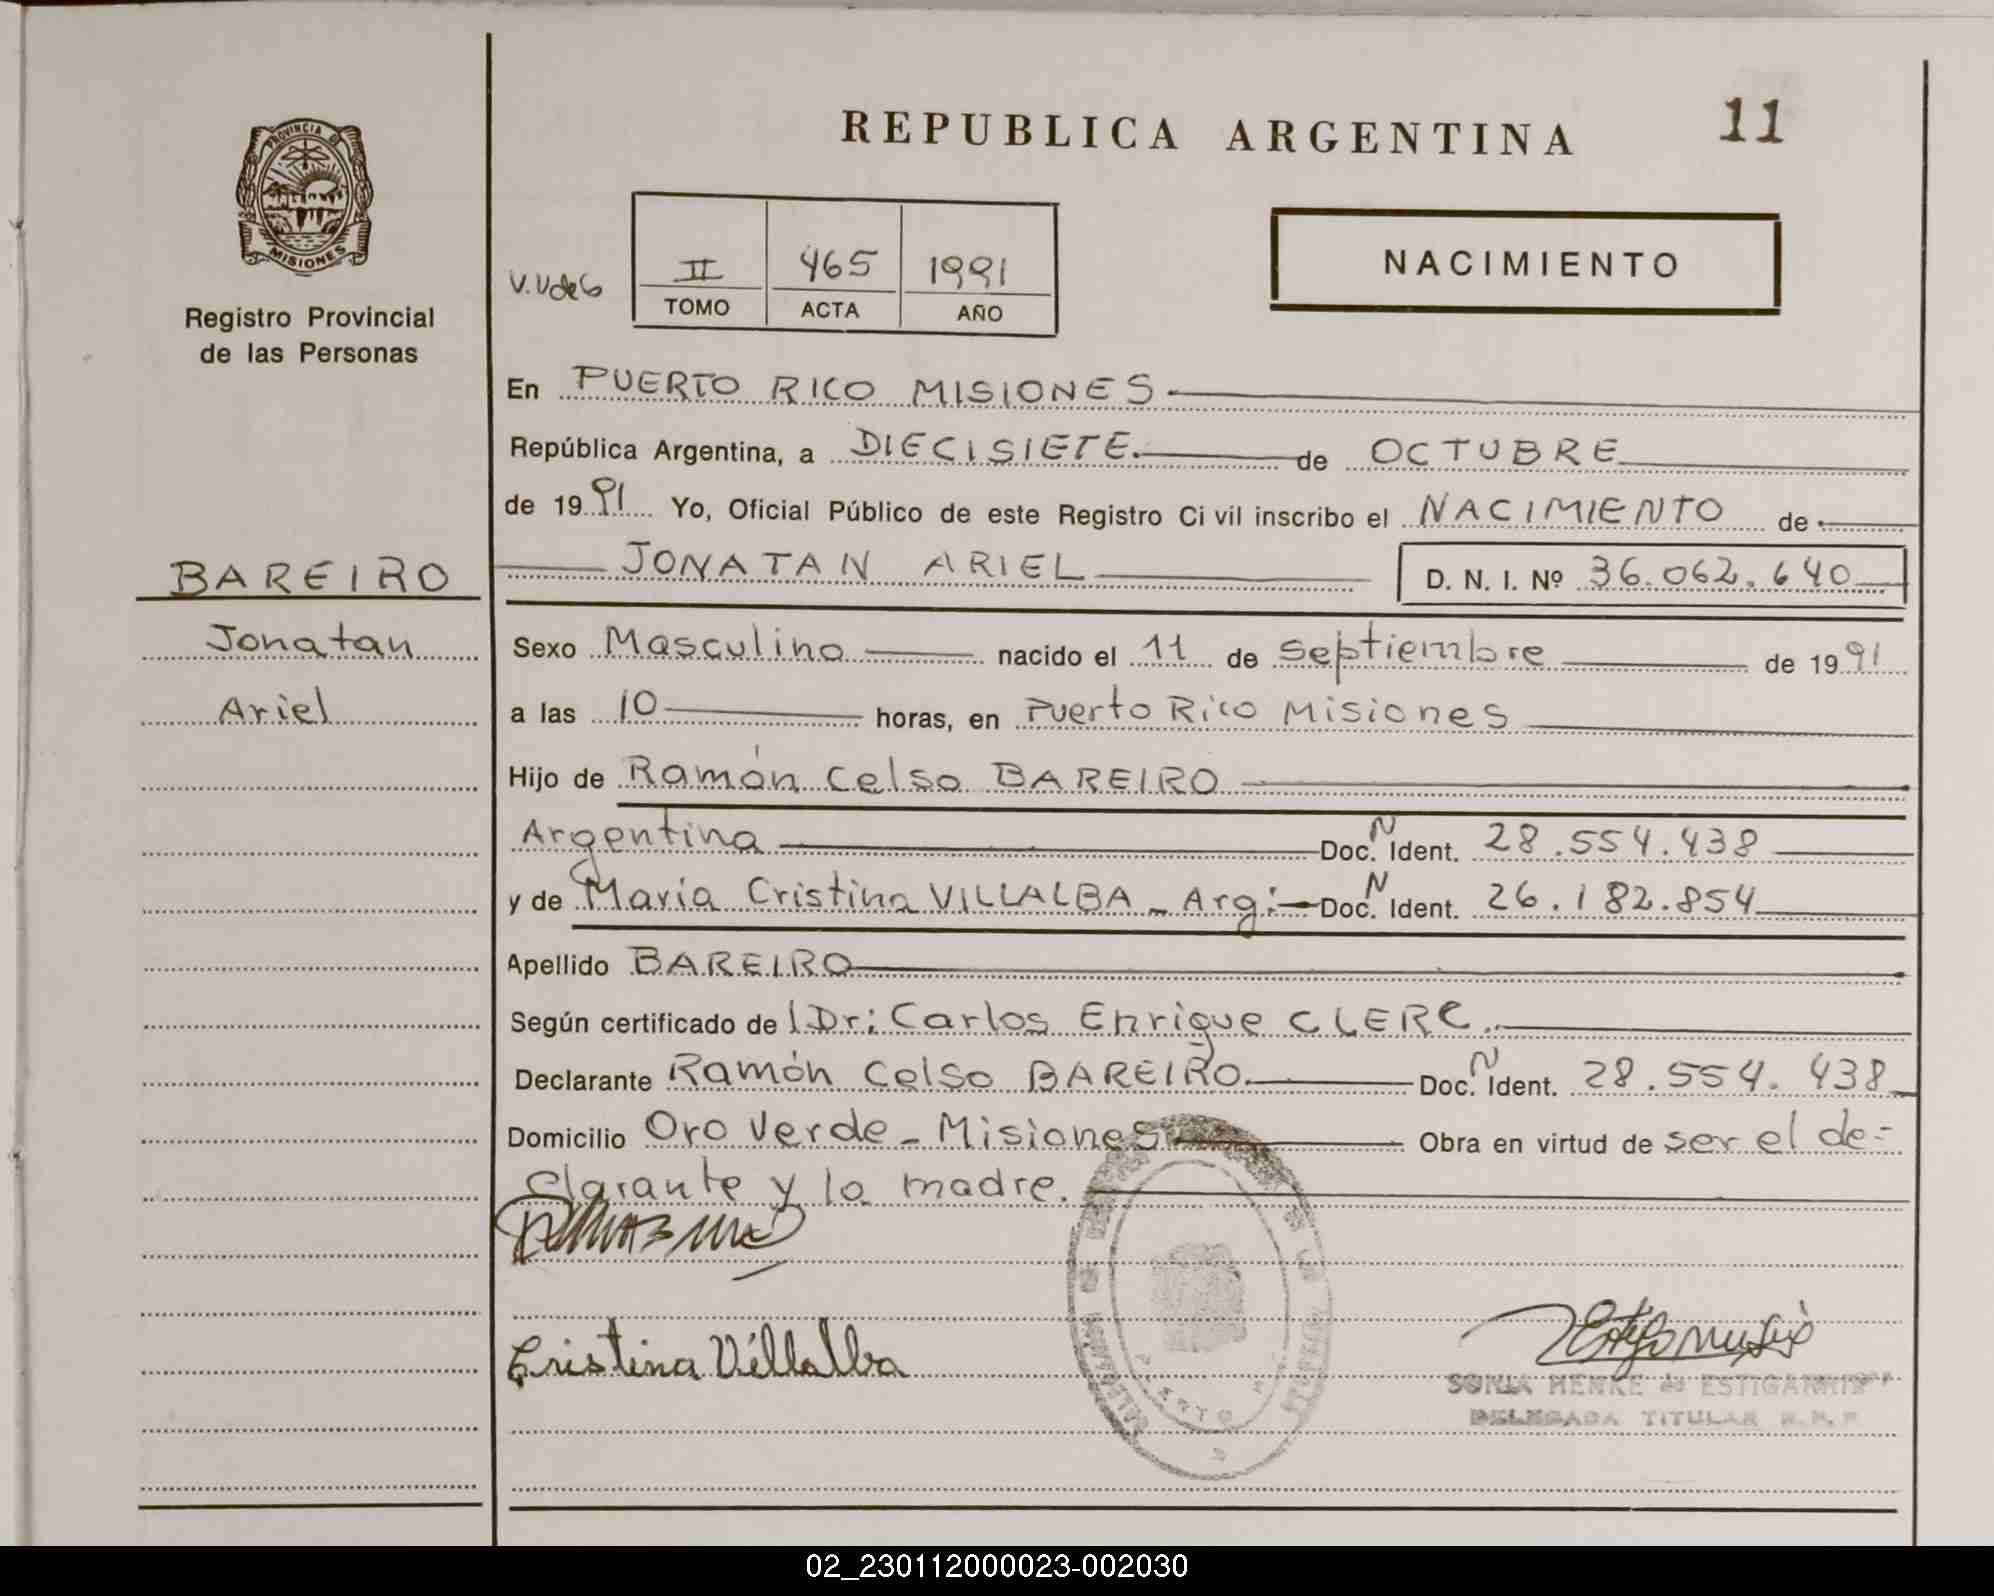 REPUBLICA ARGENTINA
11
PROVINCIA DE
MISIONES
Registro Provincial
de las Personas
II 465 1991
TOMO ACTA AÑO
NACIMIENTO
En PUERTO RICO MISIONES
República Argentina, a DIECISIETE de OCTUBRE
de 1991 Yo, Oficial Público de este Registro Civil inscribo el NACIMIENTO de
JONATAN ARIEL D. N. I. Nº 36.062.640
BAREIRO
Jonatan
Ariel
Sexo Masculino nacido el 11 de septiembre de 1991
a las 10 horas, en Puerto Rico Misiones
Hijo de Ramón Celso BAREIRO
Argentina Doc. N Ident. 28.554.438
y de María Cristina VILLALBA - Arg: Doc. N Ident. 26.182.854
Apellido BAREIRO
Según certificado de l Dr: Carlos Enrique CLERC.
Declarante Ramón Celso BAREIRO. Doc. N Ident. 28.554.438
Domicilio Oro Verde - Misiones Obra en virtud de ser el de-
clarante y la madre.
Cristina Villalba
SONIA HENKE de ESTIGARRIBIA
DELEGADA TITULAR R. P. P.
02_230112000023-002030